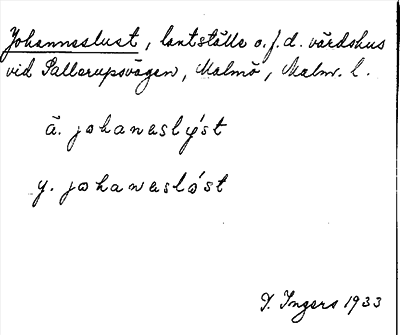 Johanneslust, lantställe o. f. d. värdshus
vid Sallerupsvägen, Malmö, Malm. l.
ä. johanaslýst
y. johanaslóst
I. Ingers 1933